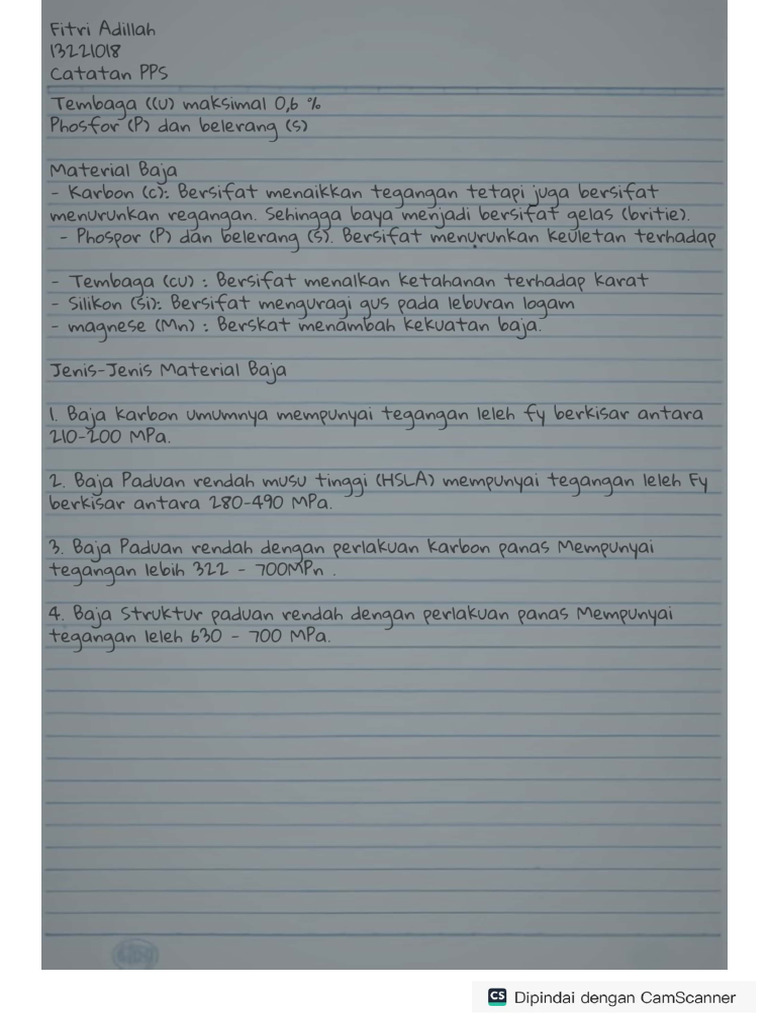 Fitri Adillah
13221018
Catatan PPS
Tembaga (CU) maksimal 0,6 %
Phosfor (P) dan belerang (S)
Material Baja
- Karbon (c): Bersifat menaikkan tegangan tetapi juga bersifat
menurunkan regangan. Sehingga baya menjadi bersifat gelas (britie).
- Phospor (P) dan belerang (S). Bersifat menurunkan keuletan terhadap
- Tembaga (cu) : Bersifat menalkan ketahanan terhadap karat
- Silikon (Si): Bersifat menguragi gus pada leburan logam
- magnese (Mn) : Berskat menambah kekuatan baja.
Jenis-Jenis Material Baja
1. Baja Karbon umumnya mempunyai tegangan leleh fy berkisar antara
210-200 MPa.
2. Baja Paduan rendah musu tinggi (HSLA) mempunyai tegangan leleh Fy
berkisar antara 280-490 MPa.
3. Baja Paduan rendah dengan perlakuan Karbon panas Mempunyai
tegangan lebih 322 - 700MPn .
4. Baja Struktur paduan rendah dengan perlakuan panas Mempunyai
tegangan leleh 630 - 700 MPa.
CS Dipindai dengan CamScanner